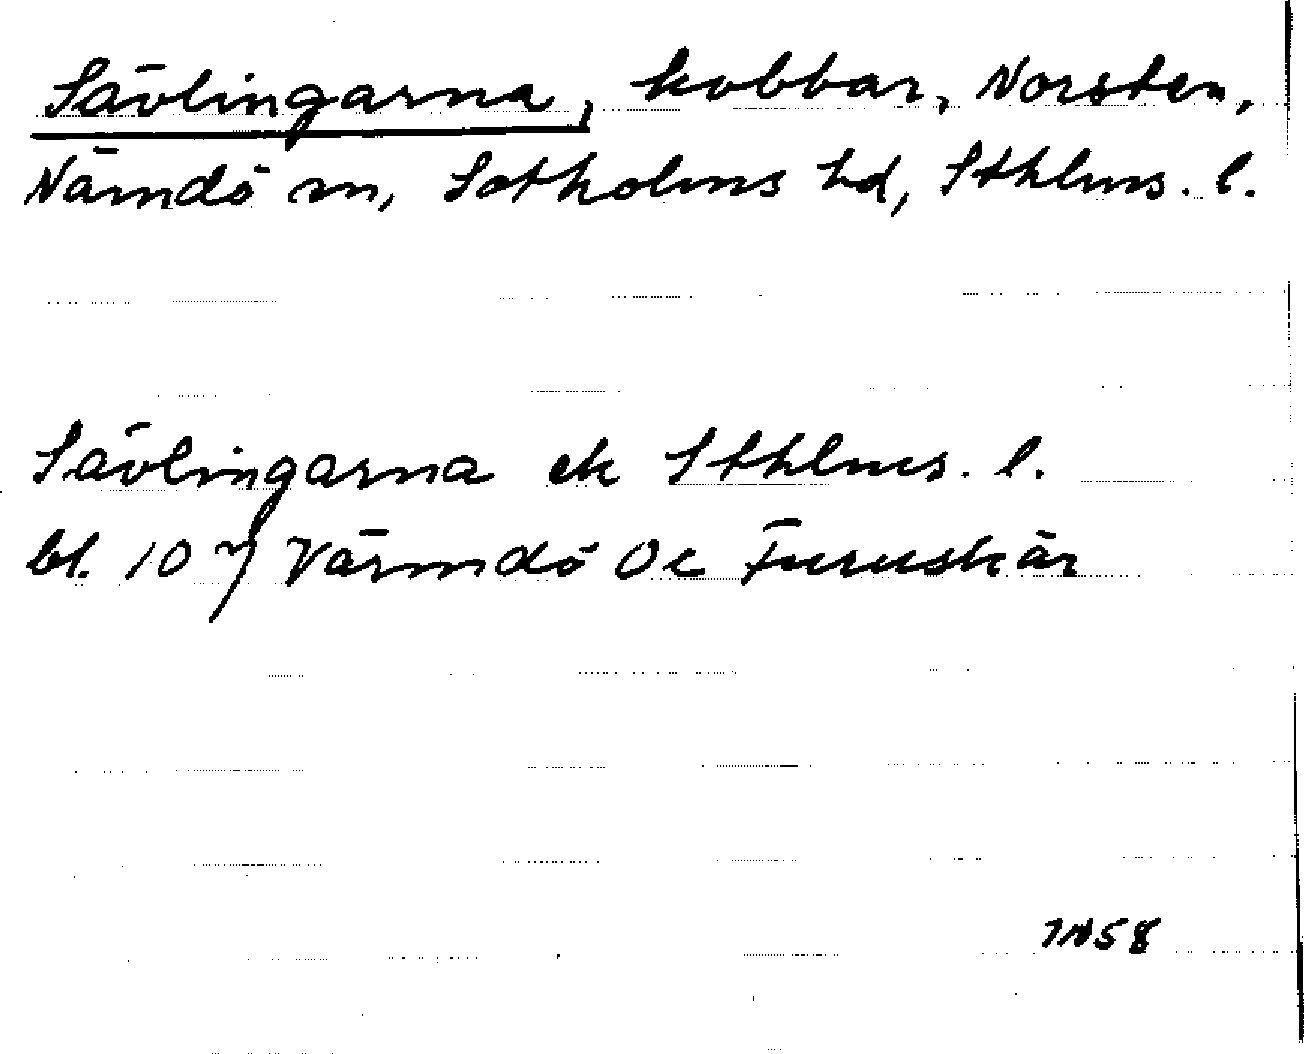 Sävlingarna, kobbar, Norsten,
Nämdö sn, Sotholms hd, Sthlms. l.
Sävlingarna ek Sthlms. l.
bl. 107 Värmdö Oc Furuskär
1958